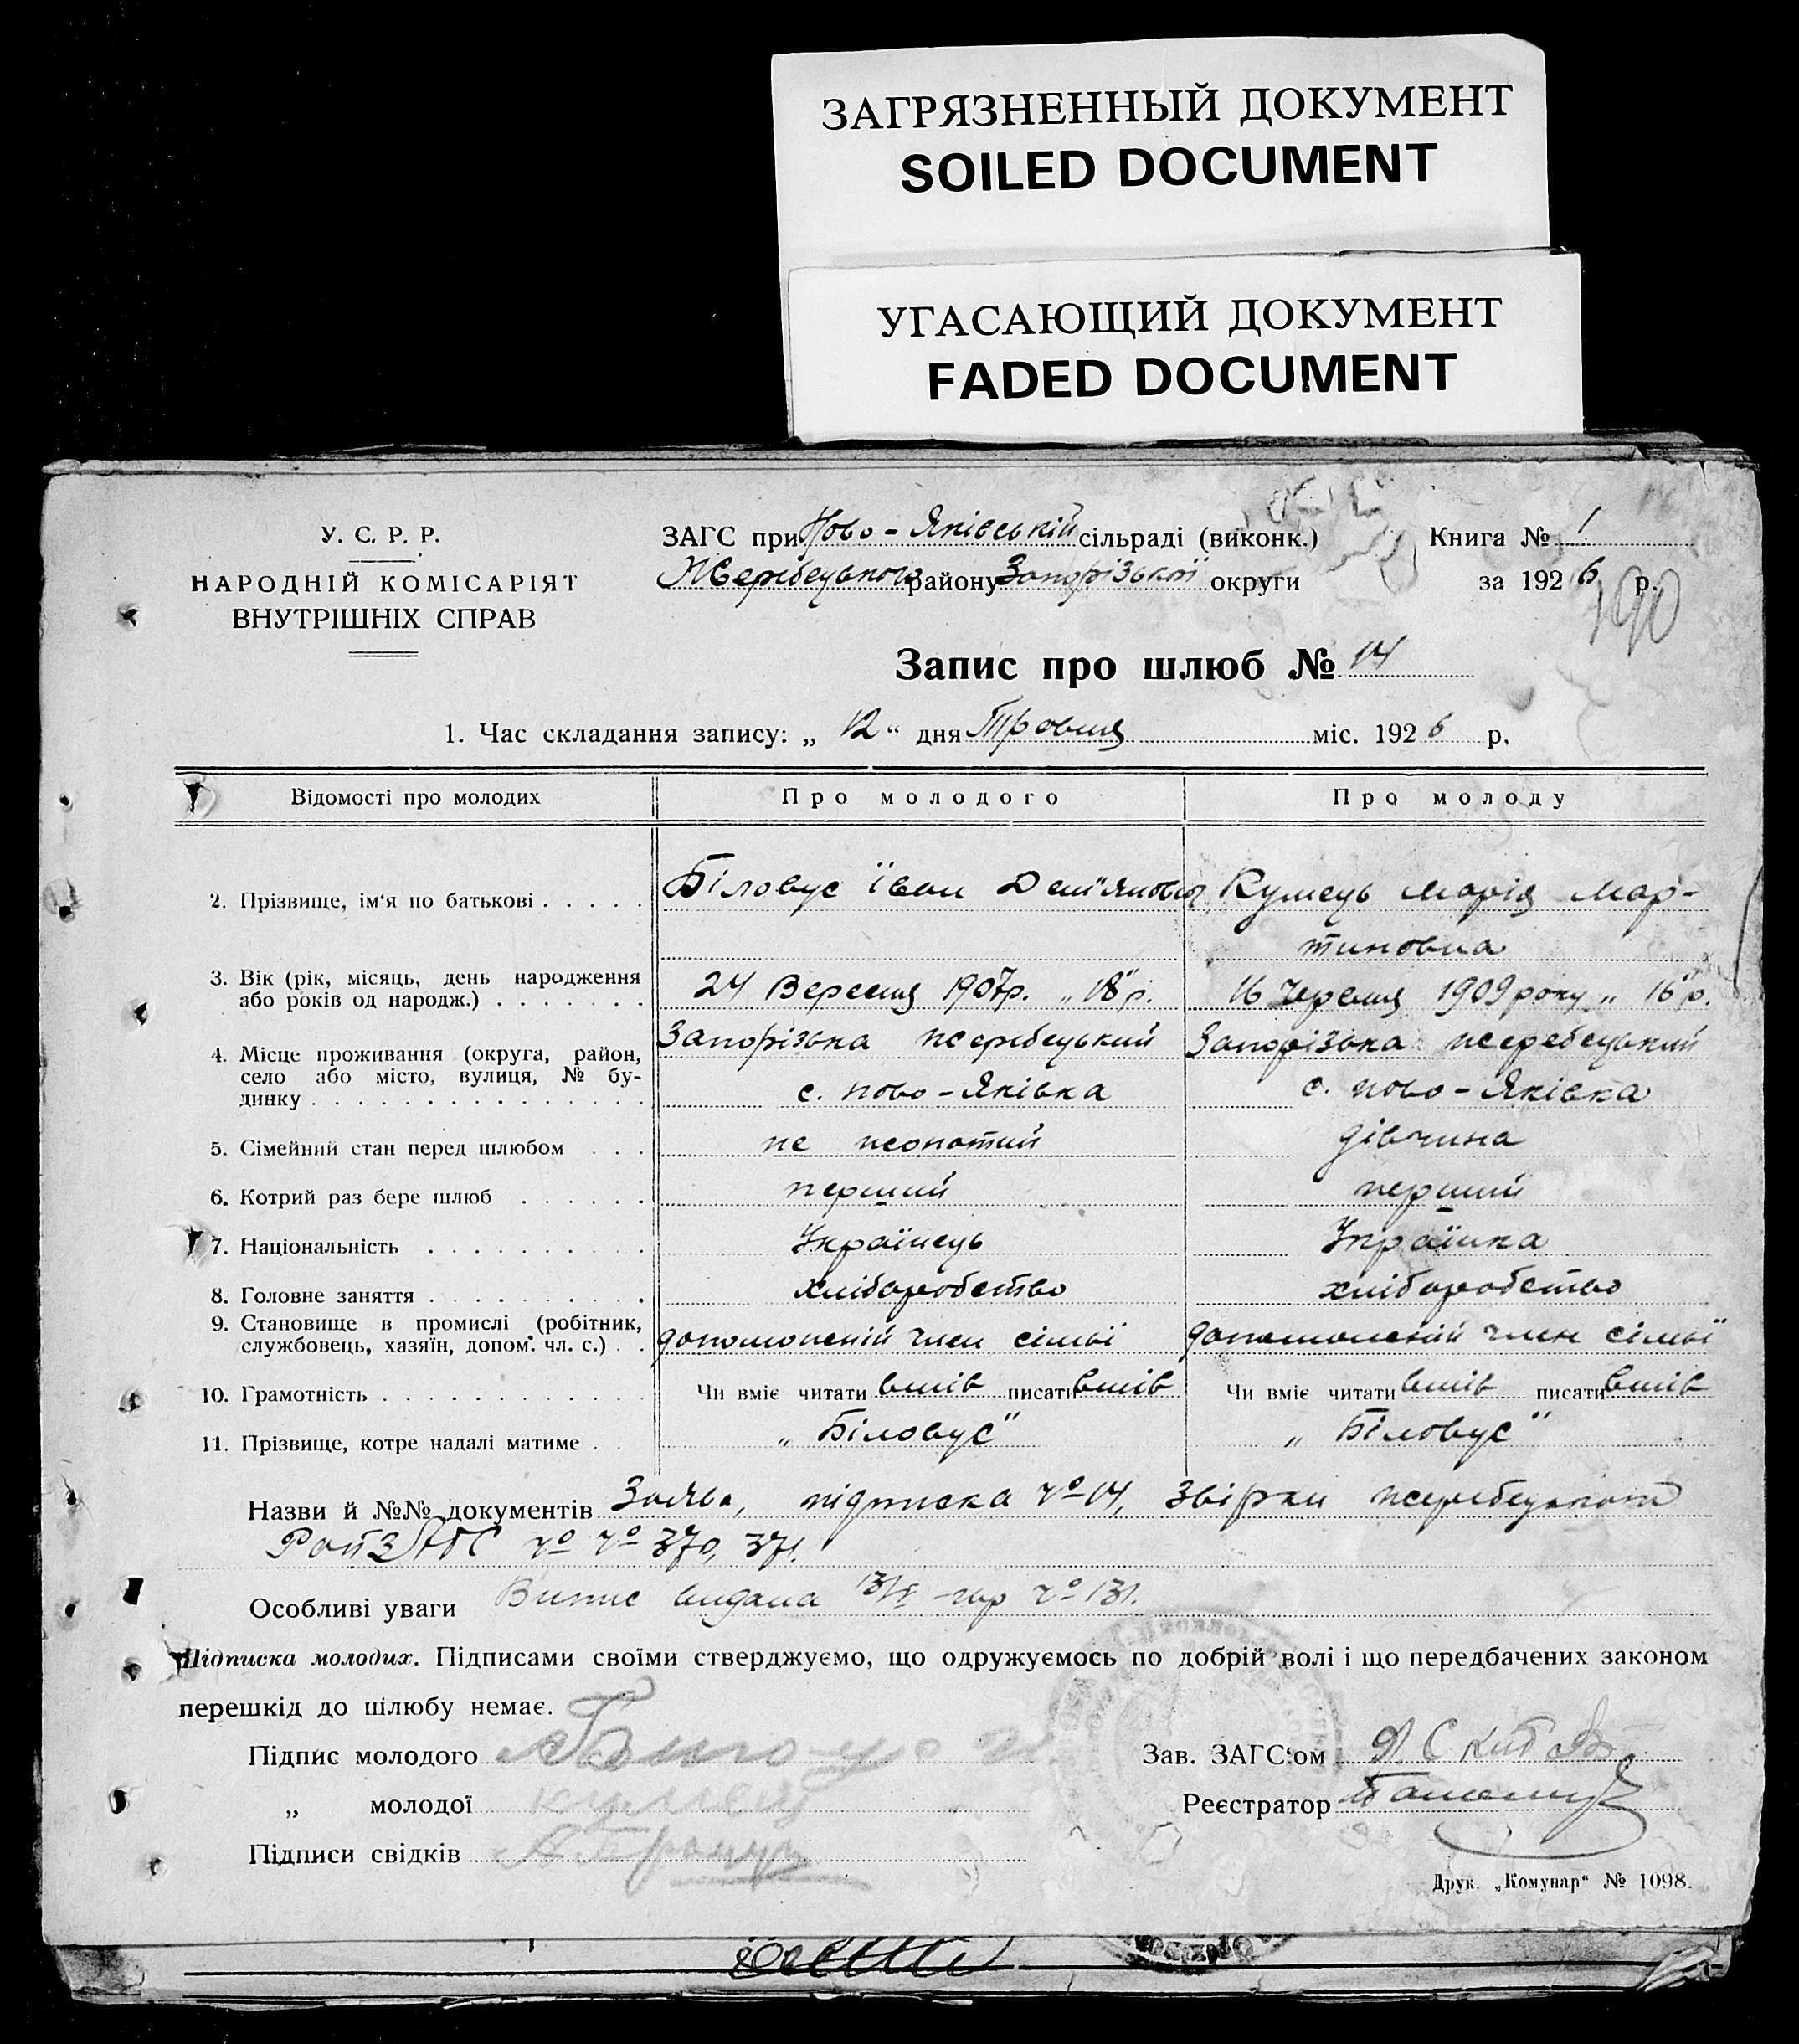 ЗАГРЯЗНЕННЫЙ ДОКУМЕНТ
SOILED DOCUMENT
УГАСАЮЩИЙ ДОКУМЕНТ
FADED DOCUMENT
У. С. Р. Р.
НАРОДНІЙ КОМІСАРІЯТ
ВНУТРІШНІХ СПРАВ
ЗАГС при Ново-Яківській сільраді (виконк.)
Жеребецького району Запорізької округи
Книга № 1
за 1926 р.
190
Запис про шлюб № 14
1. Час складання запису: „ 12 “ дня Травня міс. 1926 р.
Відомості про молодих Про молодого Про молоду
2. Прізвище, ім‘я по батькові Біловус Іван Дем"янович Кумець Марія Мар-
тиновна
3. Вік (рік, місяць, день народження
або років од народж.) 24 Вересня 1907р. „18"р. 16 Червня 1909 року „16"р.
4. Місце проживання (округа, район,
село або місто, вулиця, № бу-
динку Запорізька жеребецький Запорізька жеребецький
с. ново-Яківка с. ново-Яківка
5. Сімейний стан перед шлюбом не жонатий дівчина
6. Котрий раз бере шлюб перший перший
7. Національність Українець Українка
8. Головне заняття хліборобство хліборобство
9. Становище в промислі (робітник,
службовець, хазяїн, допом. чл. с.) допоможній член сімьї допоможній член сімьї
10. Грамотність Чи вміє читати вмів писати вмів Чи вміє читати вмів писати вмів
11. Прізвище, котре надалі матиме „Біловус" „Біловус"
Назви й №№ документів Заява, підписка № 14, Звірки жеребецького
РайЗАГС № № 370, 371.
Особливі уваги Випис видана 13/V № 131.
Підписка молодих. Підписами своїми стверджуємо, що одружуємось по добрій волі і що передбачених законом
перешкід до шлюбу немає.
Підпис молодого
„ молодої кумец
Підписи свідків
Зав. ЗАГС‘ом
Реєстратор
Друк. „Комунар“ № 1098.